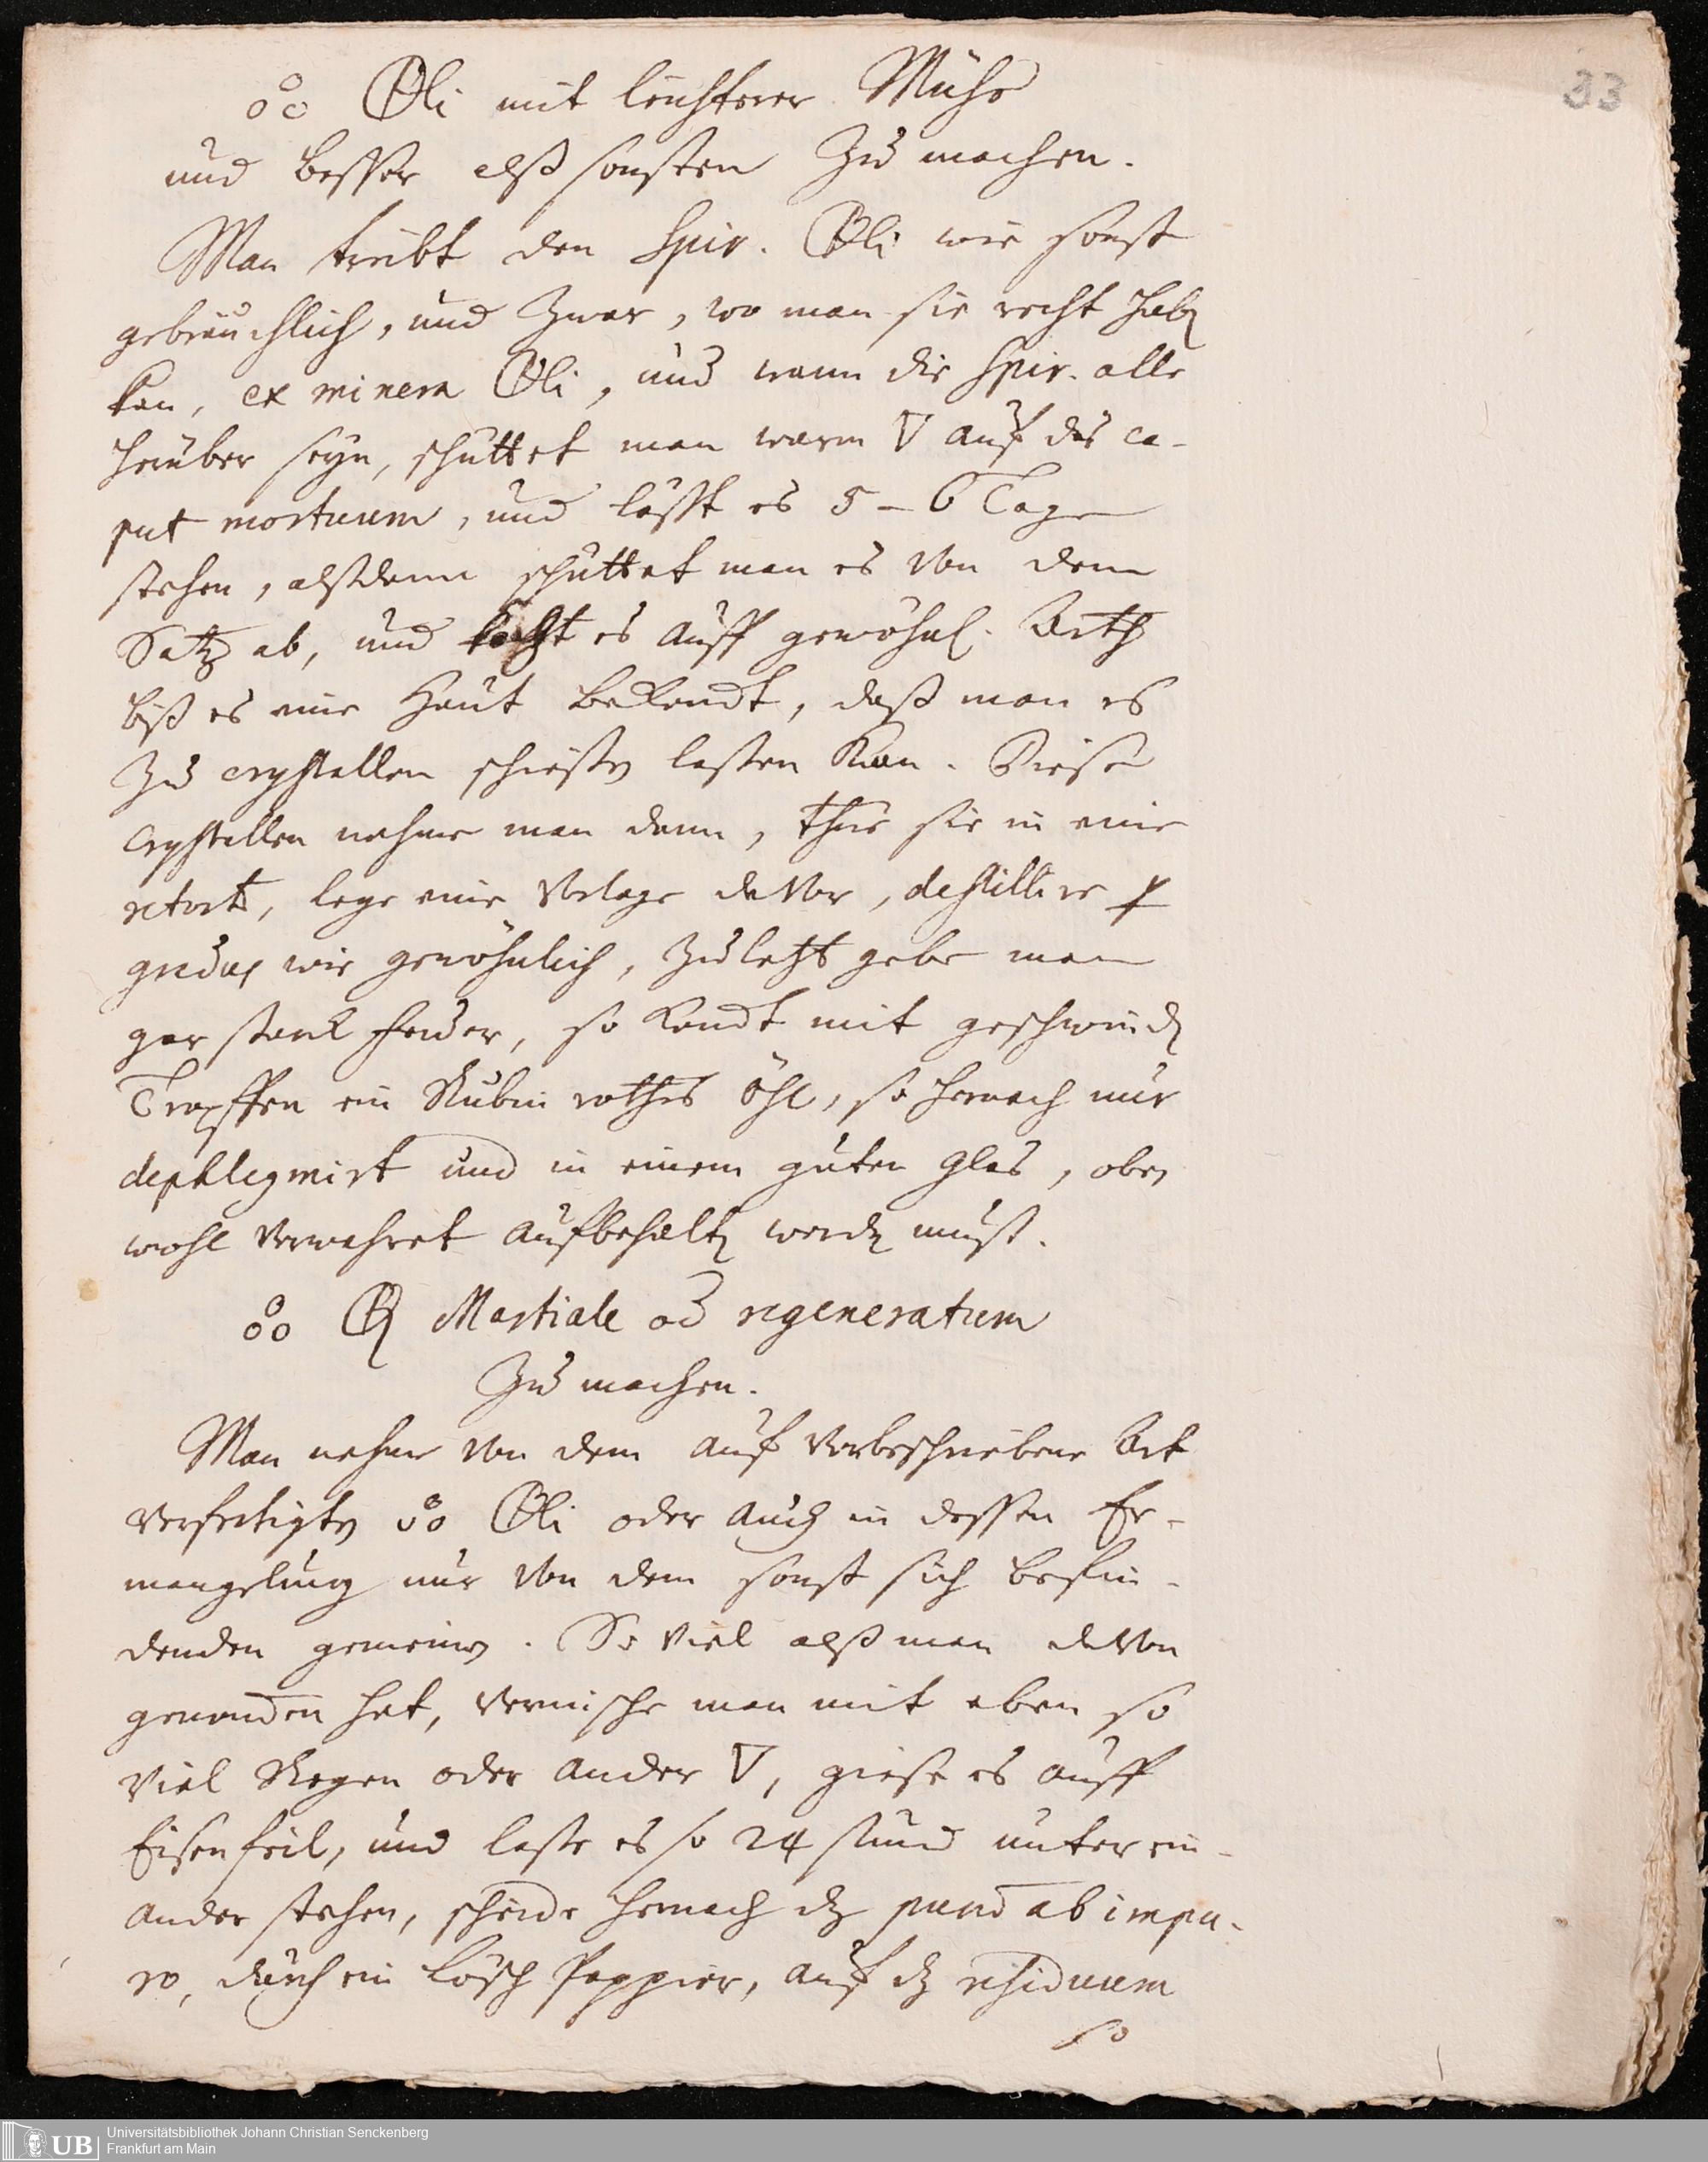 33
ooo 🜖li mit leichterer Mühe
und besser alß sonsten Zu machen.
Man treibt den Spir. 🜖li wie sonst
gebräuchlich, und zwar, wo man sie recht hab
kan, ex minera 🜖li, und wann die Spir. alle
herüber seyn, schüttet man warm 🜄 auf das ca-
put mortuum, und lässt es 5 – 6 Tage
stehen, alßdann schüttet man es von dem
Satz ab, und kocht es auff gewöhnl. Arth
biß es eine Haut bekomt, daß man es
Zu crystallen schießen lassen kan. Diese
Crystallen nehme man dann, thue sie in eine
retort, lege eine Vorlage davor, destillire p
gradus wie gewöhnlich, zuletzt gebe man
gar starck Feuer, so komt mit geschwind
Tropffen ein Rubin rothes Öhl, so hernach nur
dephlegmirt und in einem guten Glas, oben
wohl verwahret aufbehalten werden muß.
ooo 🜖 Martiale od regeneratum
Zu machen.
Man nehme von dem auf vorbeschriebene Art
verfertigten ooo 🜖li oder auch in dessen Er-
mangelung nur von dem sonst sich befin-
denden gemeinen. So viel alß man davon
genomen hat, vermische man mit eben so
viel Regen oder ander 🜄, giese es auff
Eisenfeil, und lasse es so 24 stund unter ein-
ander stehen, scheide hernach dz purum ab impu-
ro, durch ein Lösch Pappier, auf dz residuum
so
UB
Universitätsbibliothek Johann Christian Senckenberg
Frankfurt am Main